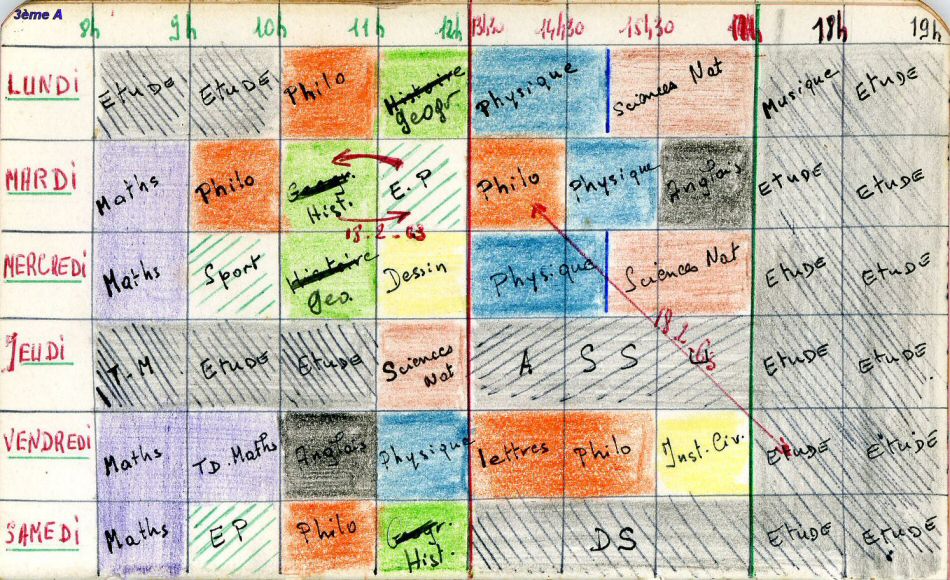 3ème A
8h 9h 10h 11h 12h 13h30 14h30 15h30 17h 18h 19h
LUNDI ETUDE ETUDE Philo Histoire Physique Sciences Nat Musique ETUDE
Géogr
MARDI Maths Philo Géogr. E.P Philo Physique Anglais ETUDE ETUDE
Hist.
18-2-63
MERCREDI Maths Sport Histoire Dessin Physique Sciences Nat ETUDE ETUDE
Géo.
18-2-63
JEUDI T.M ETUDE ETUDE Sciences A S S U ETUDE ETUDE
Nat
VENDREDI Maths TD.Maths Anglais Physique lettres Philo Inst.Civ. ETUDE ETUDE
SAMEDI Maths EP Philo Géogr. DS ETUDE ETUDE
Hist.